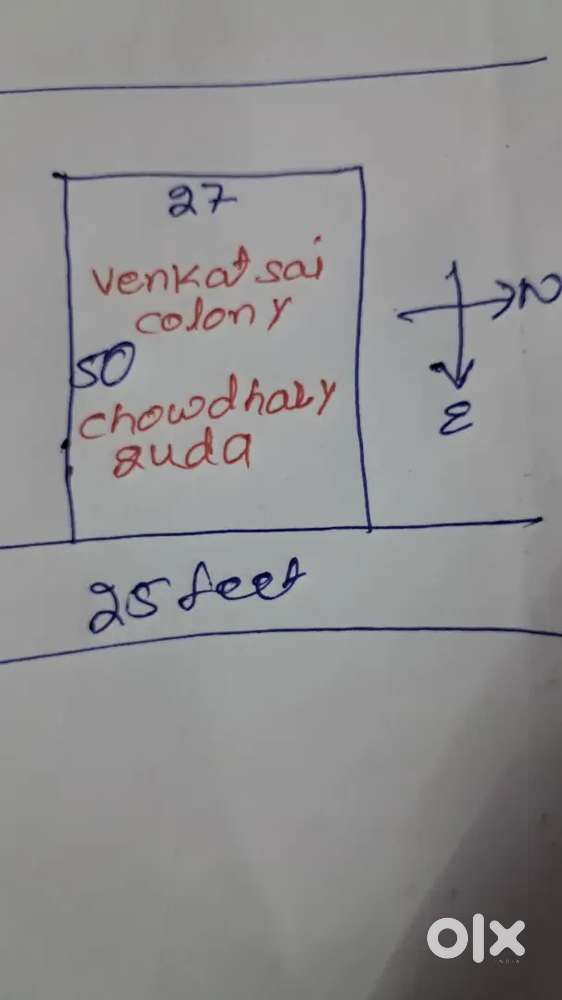 27
Venkat sai
colony
50
chowdhary
guda
N
E
25 feet
olx
INDIA